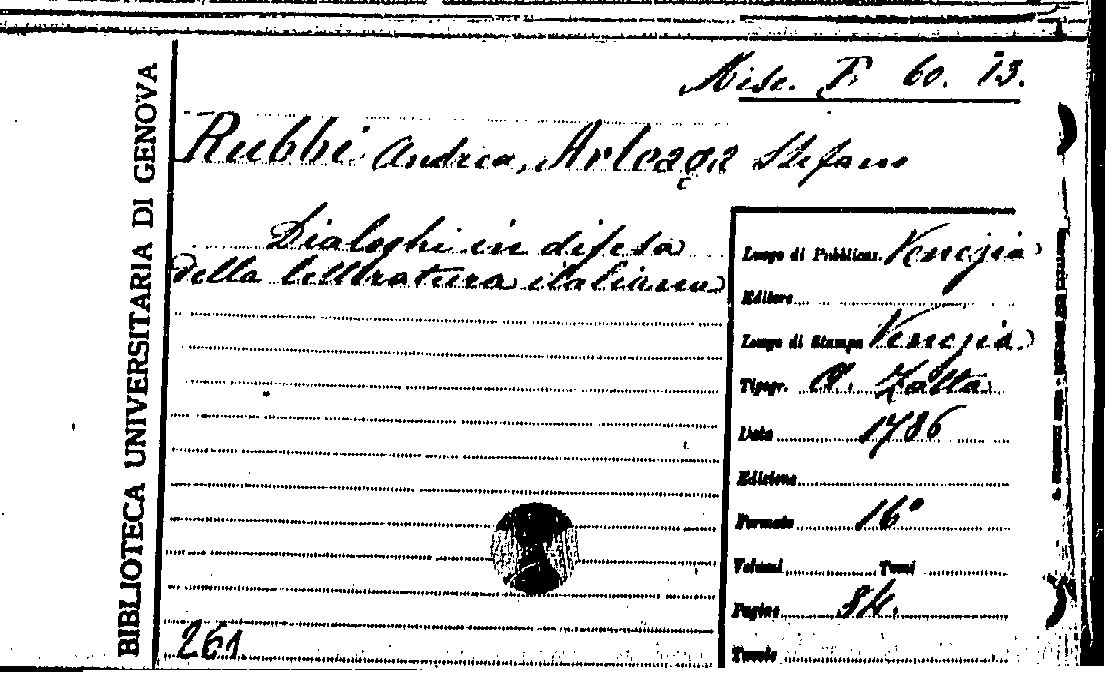 Misc. F. 60. 13.
Rubbi Andrea, Arteaga Stefano
Dialoghi in difesa
della letteratura italiana
BIBLIOTECA UNIVERSITARIA DI GENOVA
Luogo di Pubblicaz. Venezia
Editore
Luogo di Stampa Venezia
Tipogr. A. Zatta
Data 1786
Edizione
Formato 16°
Volumi Tomi
Pagine 84.
Tavole
261